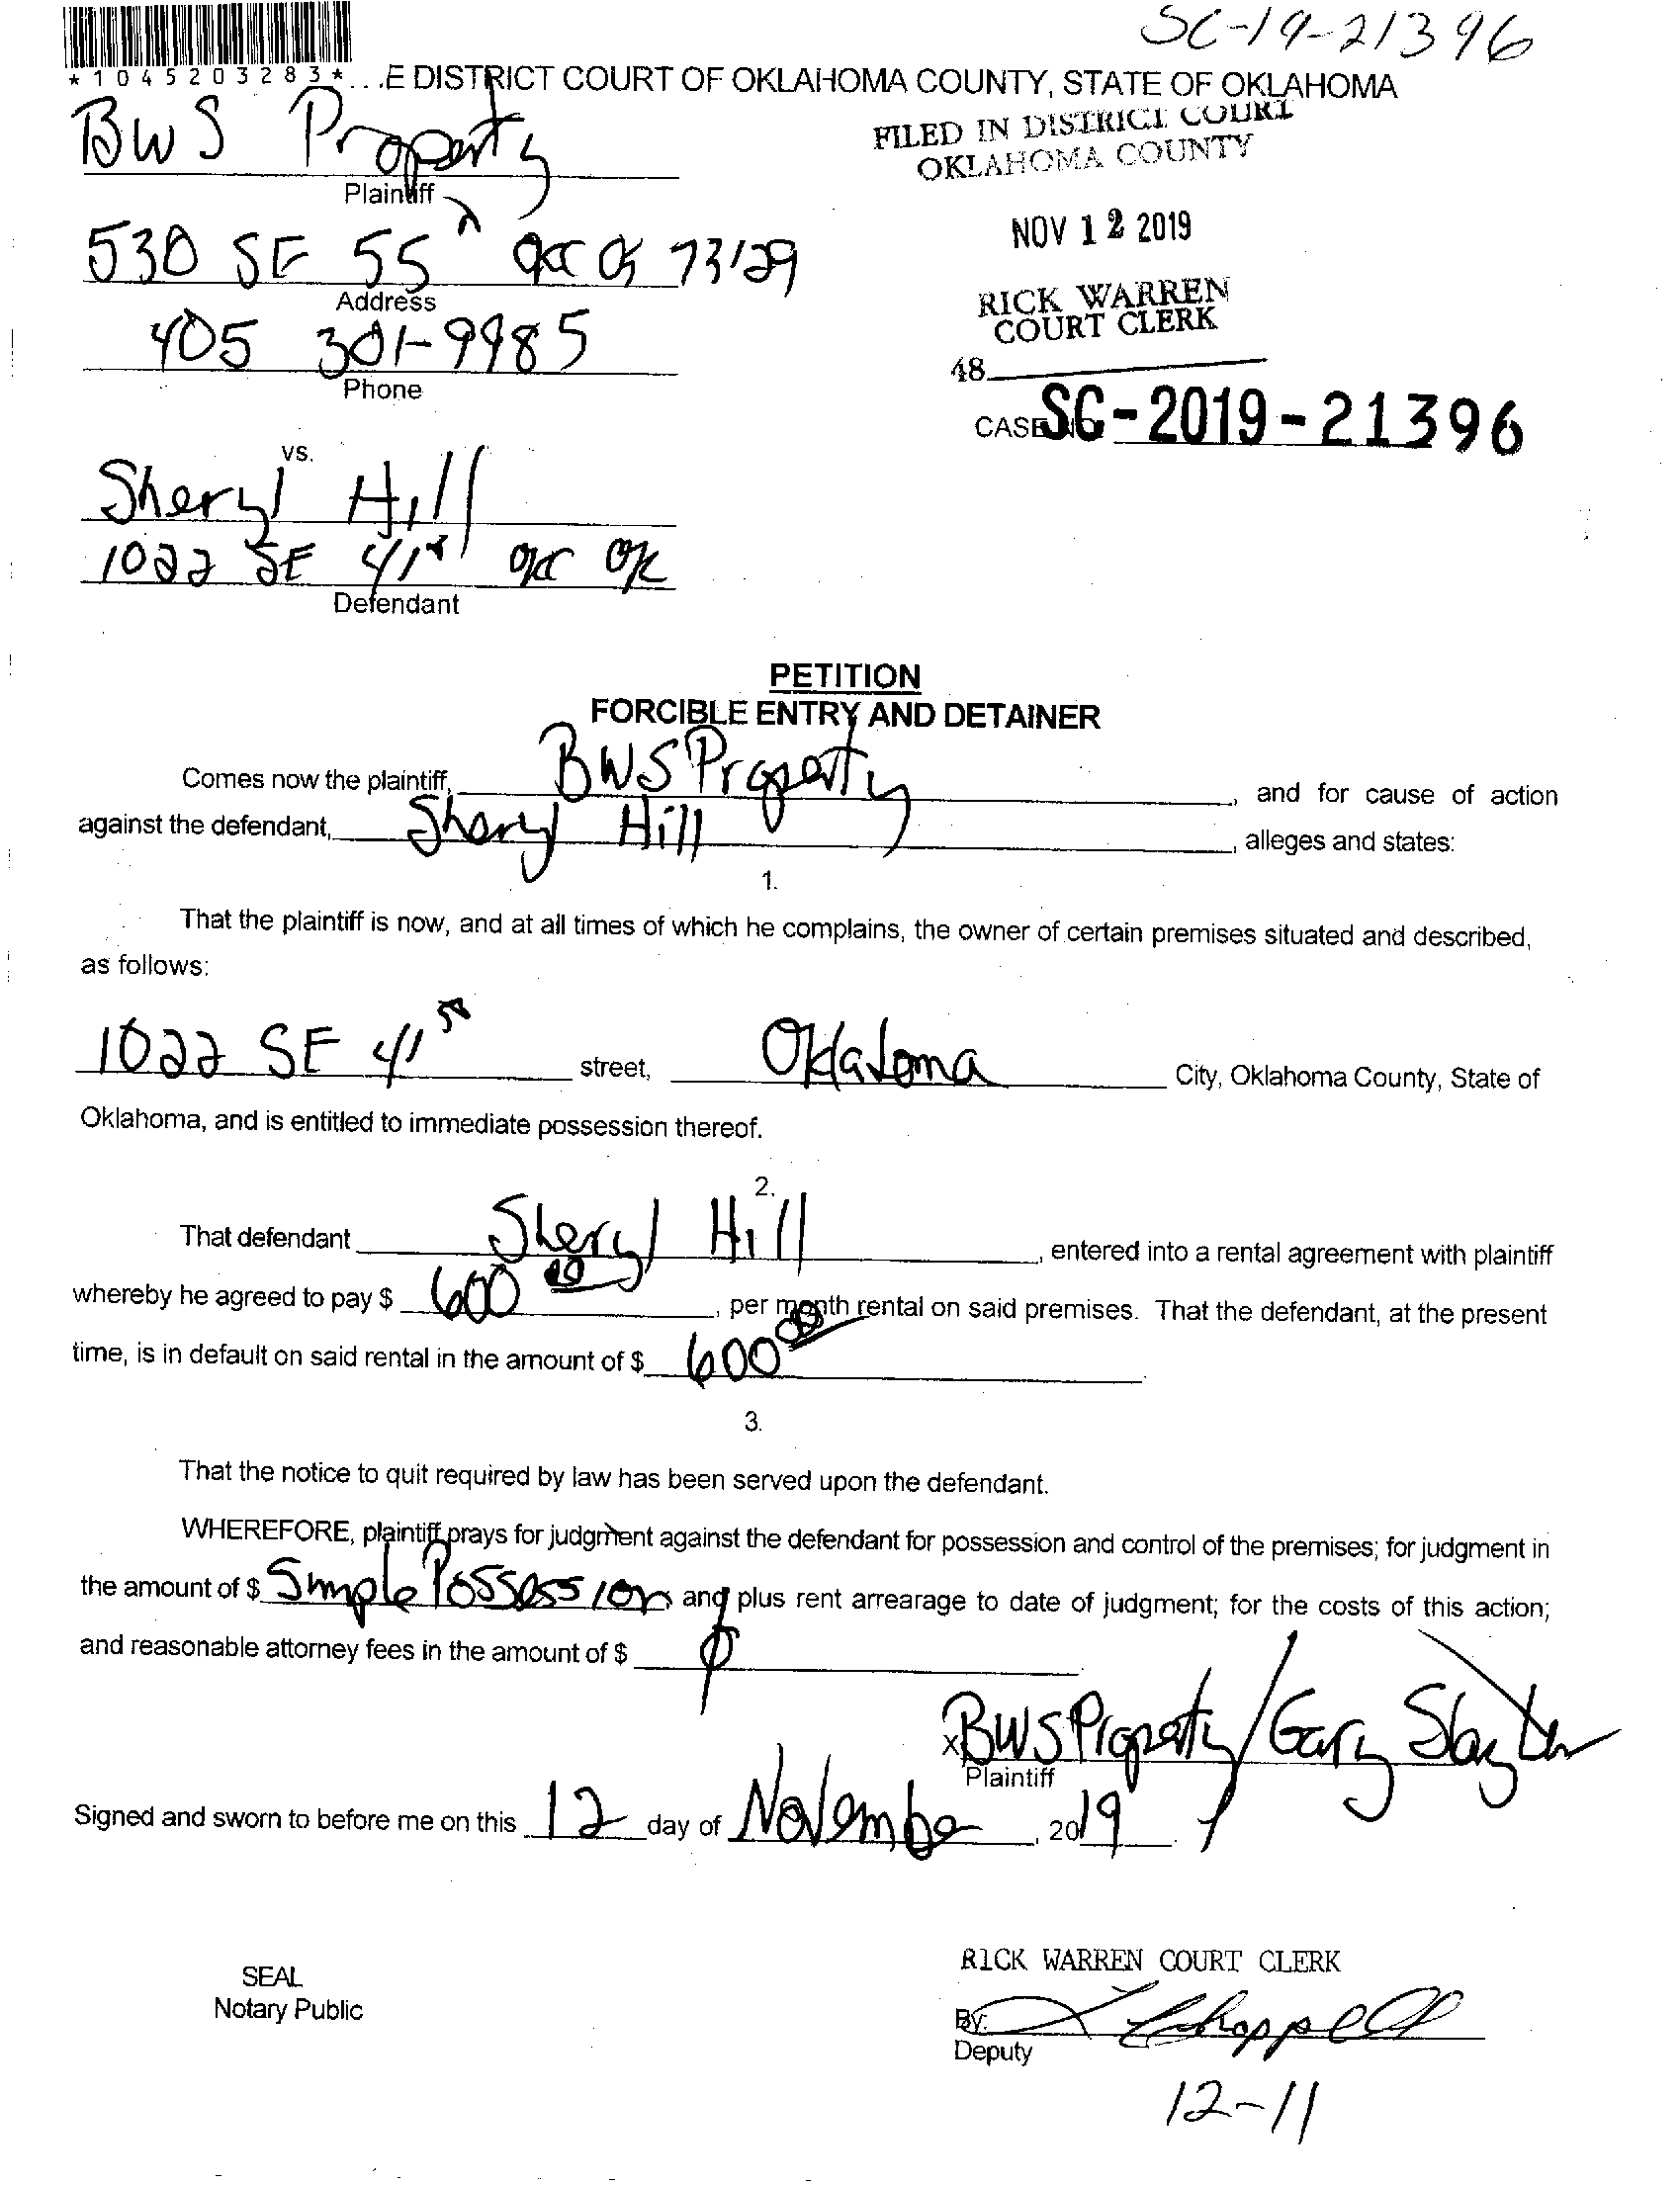 SC-19-21396
*1045203283*...E DISTRICT COURT OF OKLAHOMA COUNTY, STATE OF OKLAHOMA
BWS Property
Plaintiff
FILED IN DISTRICT COURT
OKLAHOMA COUNTY
NOV 12 2019
RICK WARREN
COURT CLERK
48
CASE SC-2019-21396
530 SE 55 OKC OK 73129
Address
405 301-9985
Phone
vs.
Sheryl Hill
1022 SE 41st OKC OK
Defendant
PETITION
FORCIBLE ENTRY AND DETAINER
Comes now the plaintiff, BWS Property, and for cause of action
against the defendant, Sheryl Hill, alleges and states:
1.
That the plaintiff is now, and at all times of which he complains, the owner of certain premises situated and described,
as follows:
1022 SE 41st street, Oklahoma City, Oklahoma County, State of
Oklahoma, and is entitled to immediate possession thereof.
2.
That defendant Sheryl Hill, entered into a rental agreement with plaintiff
whereby he agreed to pay $ 600 00, per month rental on said premises. That the defendant, at the present
time, is in default on said rental in the amount of $ 600 00
3.
That the notice to quit required by law has been served upon the defendant.
WHEREFORE, plaintiff prays for judgment against the defendant for possession and control of the premises; for judgment in
the amount of $ Simple Possession and plus rent arrearage to date of judgment; for the costs of this action;
and reasonable attorney fees in the amount of $ ϕ
x BWS Property/Gary Slayton
Plaintiff
Signed and sworn to before me on this 12 day of November, 2019
SEAL
Notary Public
RICK WARREN COURT CLERK
By: Chappell
Deputy
12-11